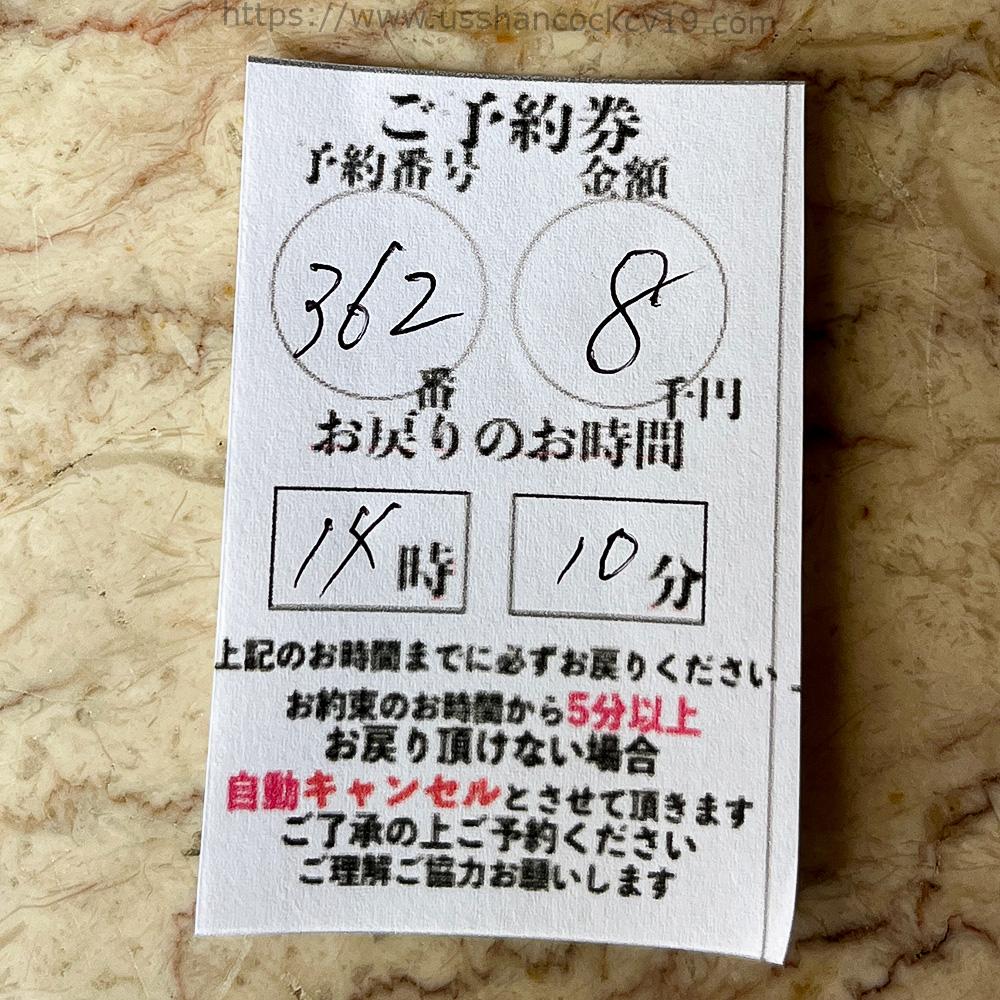 https://www.usshancockcv19.com
ご予約券
予約番号 金額
362 8
番 千円
お戻りのお時間
14時 10分
上記のお時間までに必ずお戻りください
お約束のお時間から5分以上
お戻り頂けない場合
自動キャンセルとさせて頂きます
ご了承の上ご予約ください
ご理解ご協力お願いします